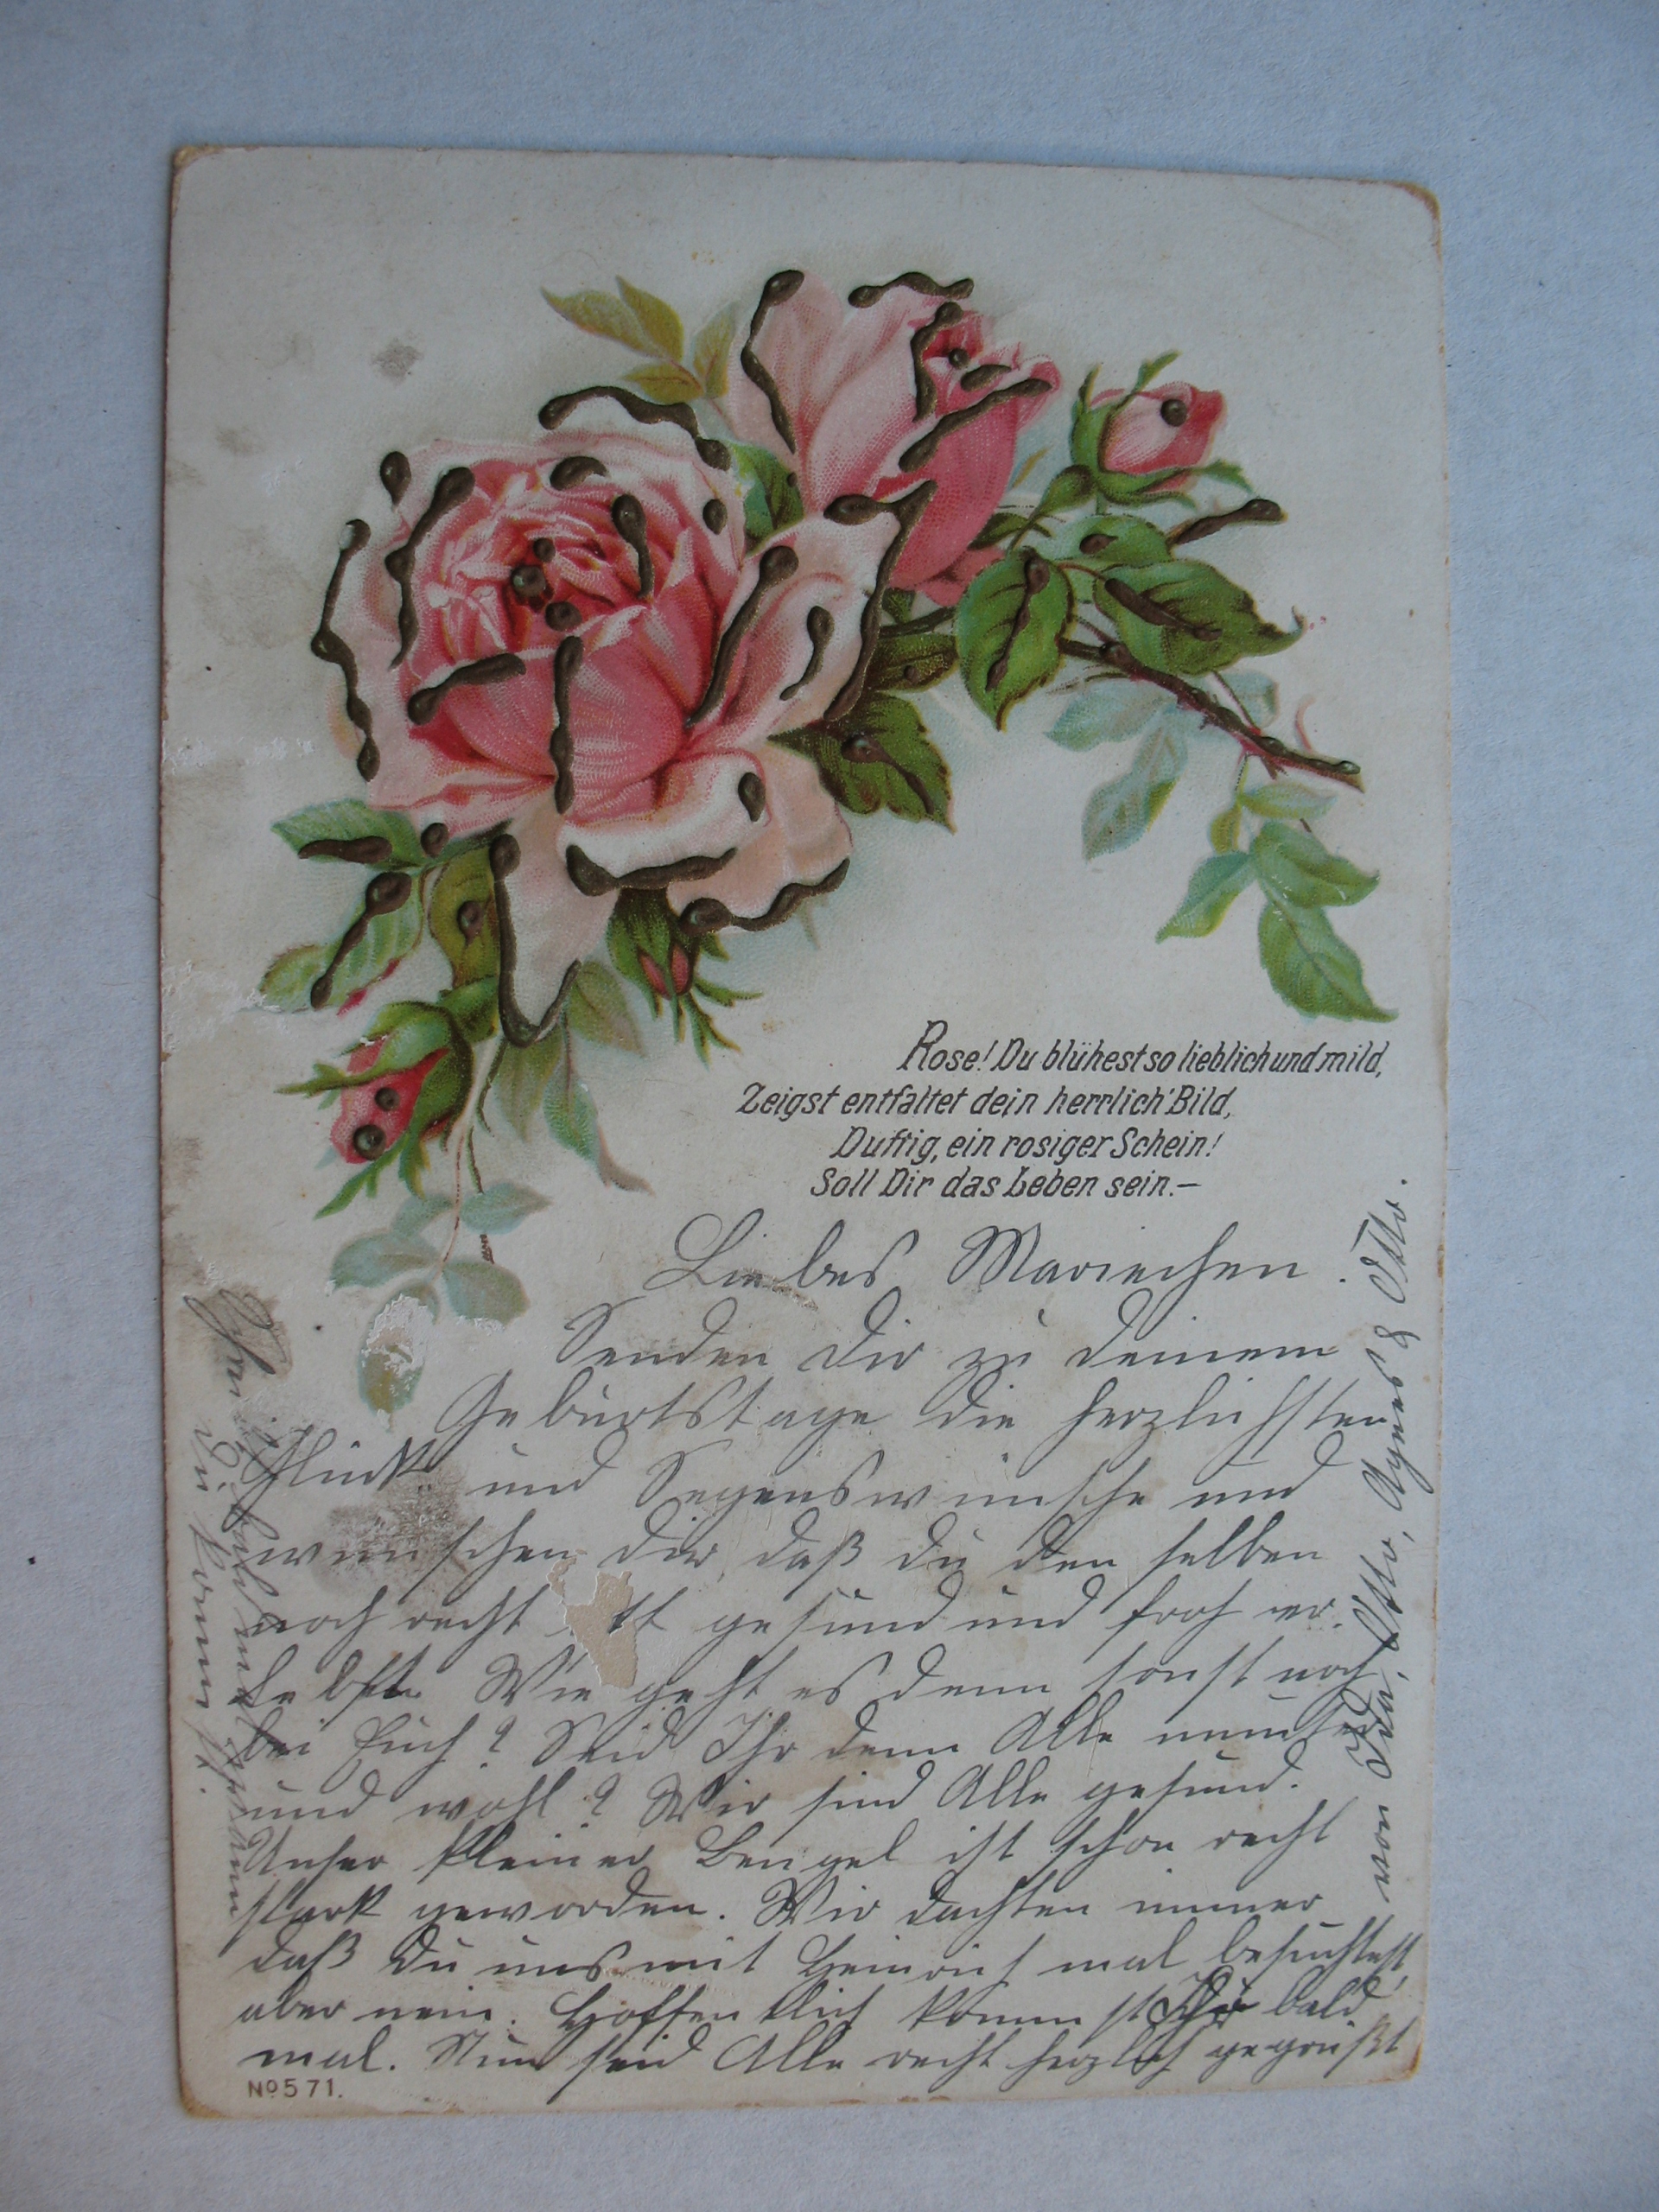 Rose! Du blühest so lieblich und mild,
Zeigst entfaltet dein herrlich' Bild,
Duftig, ein rosiger Schein!
Soll Dir das Leben sein.—
Liebes Mariechen.
Senden Dir zu Deinem
Geburtstage die herzlichsten
Glück- und Segenswünsche und
wünschen Dir, daß Du den selben
noch recht oft gesund und froh ver-
lebst. Wie geht es denn sonst noch
bei Euch? Seid Ihr denn Alle munter
und wohl? Wir sind Alle gesund.
Unser kleiner Bengel ist schon recht
stark geworden. Wir dachten immer
daß Du uns mit Heinrich mal besuchtest,
aber nein. Hoffentlich kommst Du bald
mal. Nun seid Alle recht herzlich gegrüßt
von Ida, Otto, Agnes & Otto.
Du kommst.
No 571.